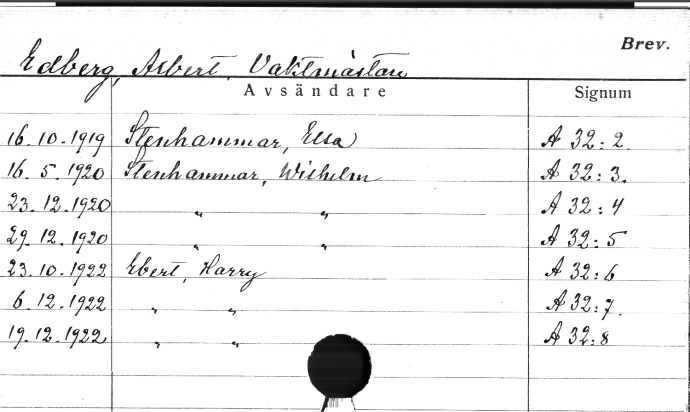 Brev.
Edberg, Albert, Vaktmästare
Avsändare Signum
16.10.1919 Stenhammar, Elsa A 32:2.
16.5.1920 Stenhammar, Wilhelm A 32:3.
23.12.1920 " " A 32:4
29.12.1920 " " A 32:5
23.10.1922 Ebert, Harry A 32:6
6.12.1922 " " A 32:7.
19.12.1922 " " A 32:8